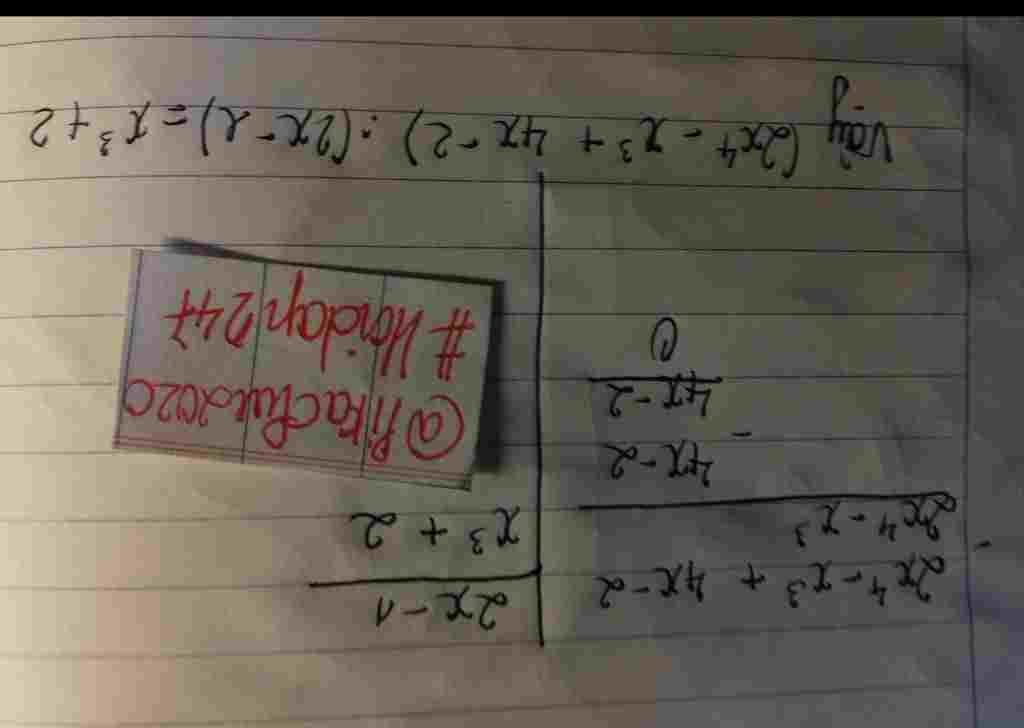 2x⁴ - x³ + 4x - 2 | 2x - 1
-
2x⁴ - x³ | x³ + 2
4x - 2
-
4x - 2
0
#Hoidap247
Vậy (2x⁴ - x³ + 4x - 2) : (2x - 1) = x³ + 2